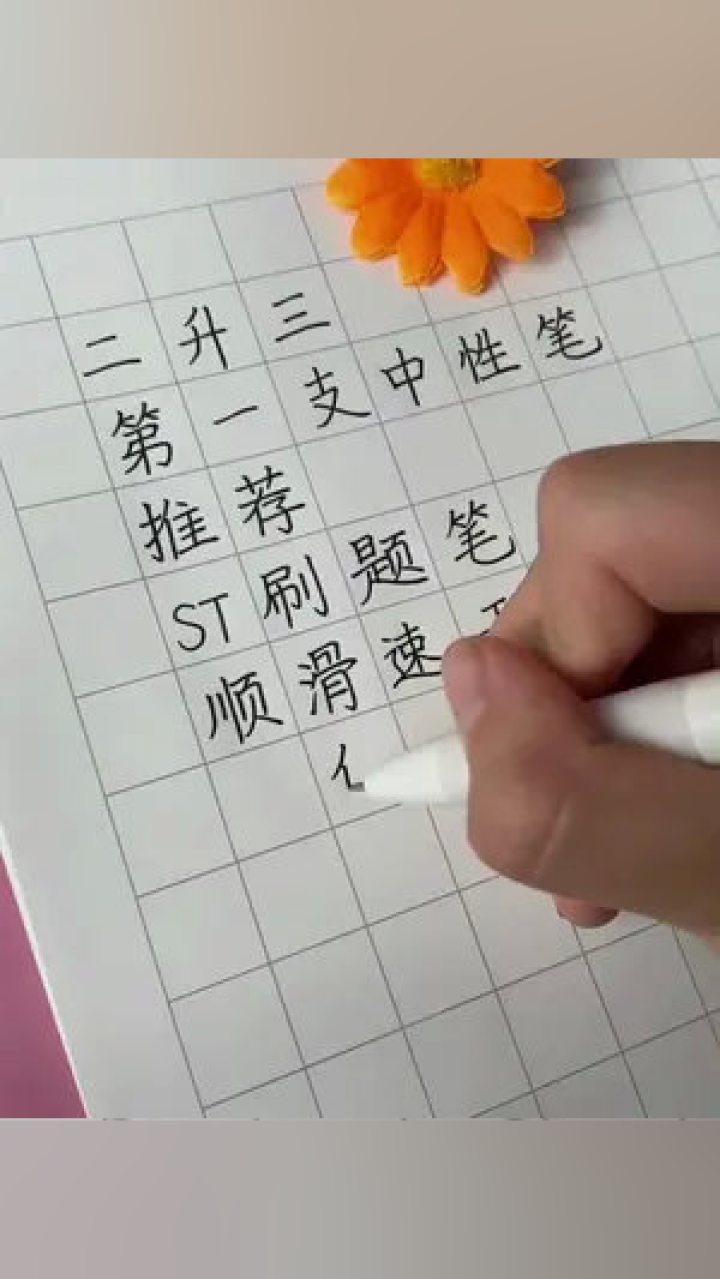 二升三
第一支中性笔
推荐
ST刷题笔
顺滑速